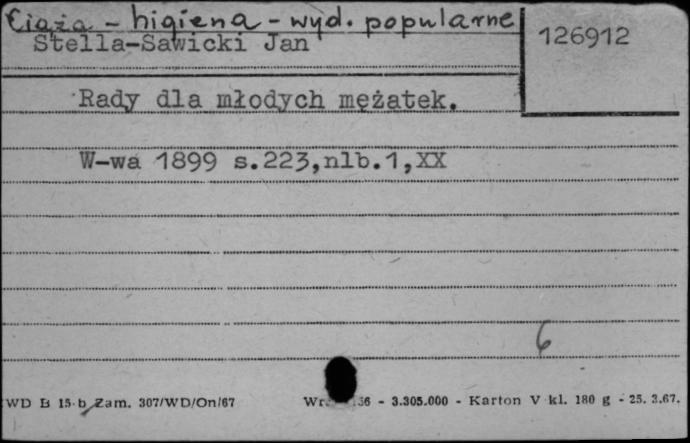 Ciąża - higiena - wyd. popularne
Stella-Sawicki Jan
126912
Rady dla młodych mężatek.
W-wa 1899 s.223,nlb.1,XX
6
WD B 15 b Zam. 307/WD/On/67 56 - 3.305.000 - Karton V kl. 180 g - 25. 3.67.